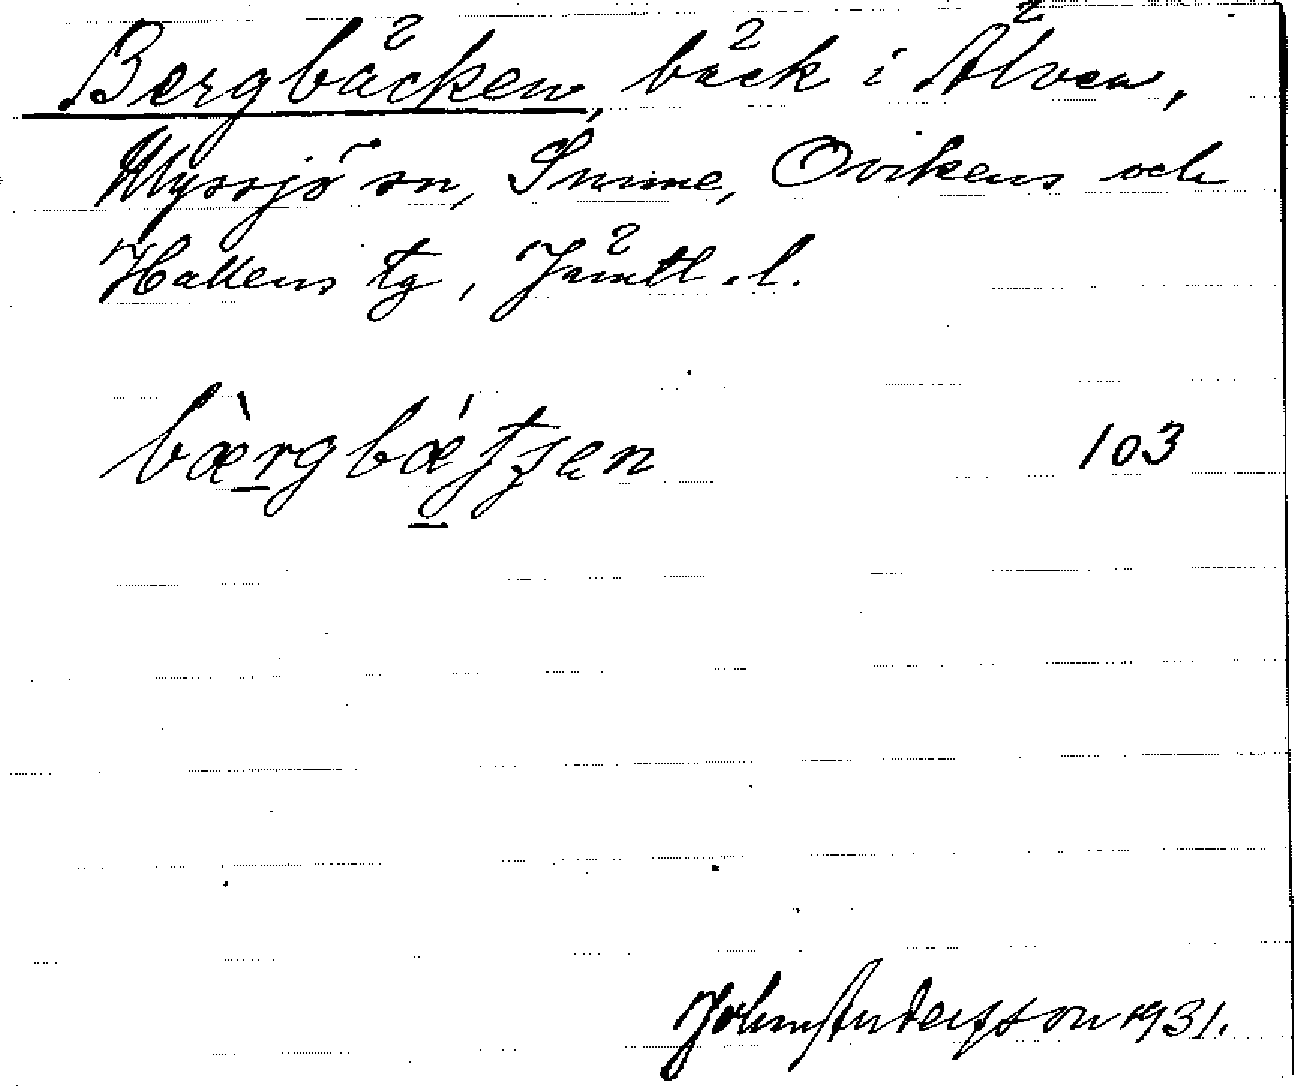 Bergbäcken, bäck i Älven,
Myssjö sn, Sunne, Ovikens och
Hallens tg, Jämtl. l.
bærgbæʃʒen 103
John Andersson 1931.